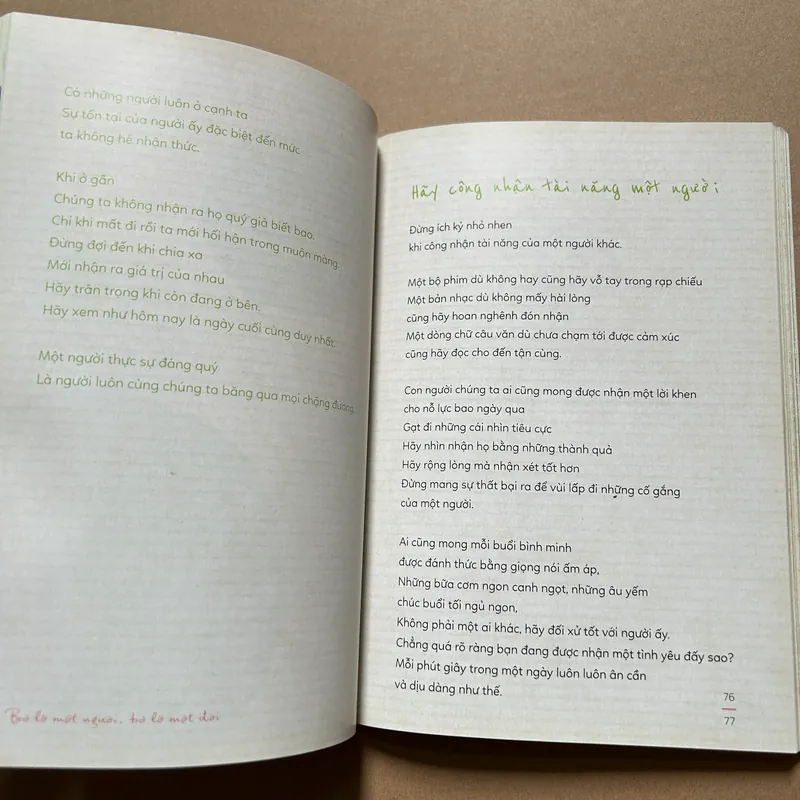 Có những người luôn ở cạnh ta
Sự tồn tại của người ấy đặc biệt đến mức
ta không hề nhận thức.
Khi ở gần
Chúng ta không nhận ra họ quý giá biết bao.
Chỉ khi mất đi rồi ta mới hối hận trong muộn màng.
Đừng đợi đến khi chia xa
Mới nhận ra giá trị của nhau
Hãy trân trọng khi còn đang ở bên.
Hãy xem như hôm nay là ngày cuối cùng duy nhất.
Một người thực sự đáng quý
Là người luôn cùng chúng ta băng qua mọi chặng đường.
Bỏ lỡ một người, bỏ lỡ một đời
Hãy công nhận tài năng một người
Đừng ích kỷ nhỏ nhen
khi công nhận tài năng của một người khác.
Một bộ phim dù không hay cũng hãy vỗ tay trong rạp chiếu
Một bản nhạc dù không mấy hài lòng
cũng hãy hoan nghênh đón nhận
Một dòng chữ câu văn dù chưa chạm tới được cảm xúc
cũng hãy đọc cho đến tận cùng.
Con người chúng ta ai cũng mong được nhận một lời khen
cho nỗ lực bao ngày qua
Gạt đi những cái nhìn tiêu cực
Hãy nhìn nhận họ bằng những thành quả
Hãy rộng lòng mà nhận xét tốt hơn
Đừng mang sự thất bại ra để vùi lấp đi những cố gắng
của một người.
Ai cũng mong mỗi buổi bình minh
được đánh thức bằng giọng nói ấm áp,
Những bữa cơm ngon canh ngọt, những âu yếm
chúc buổi tối ngủ ngon,
Không phải một ai khác, hãy đối xử tốt với người ấy.
Chẳng quá rõ ràng bạn đang được nhận một tình yêu đấy sao?
Mỗi phút giây trong một ngày luôn luôn ân cần
và dịu dàng như thế.
76
77